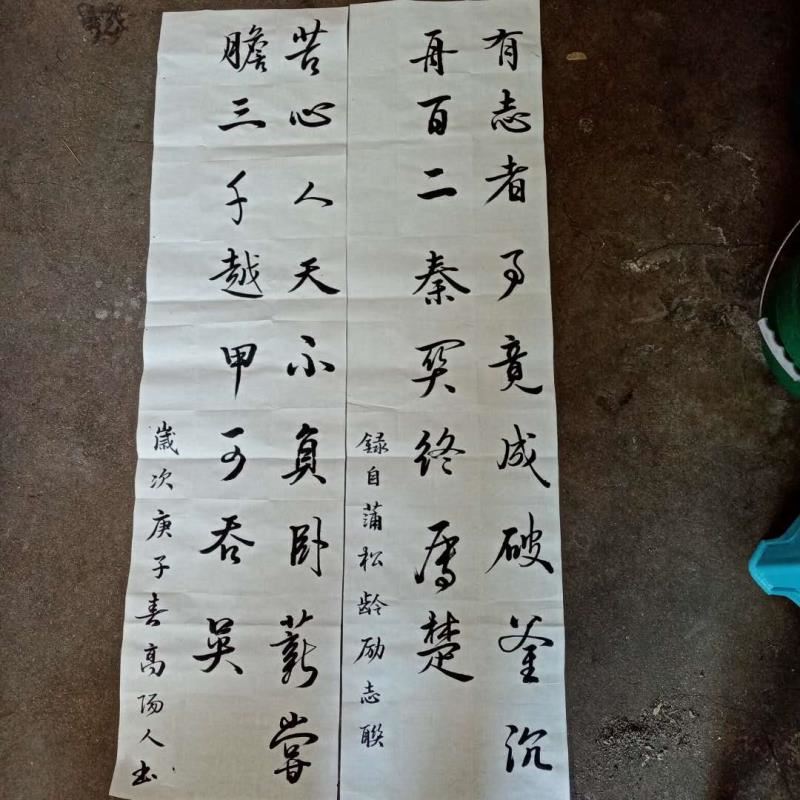 有志者事竟成破釜沉
舟百二秦関终属楚
録自蒲松龄励志聯
苦心人天不負卧薪嘗
膽三千越甲可吞吳
歲次庚子春高阳人书